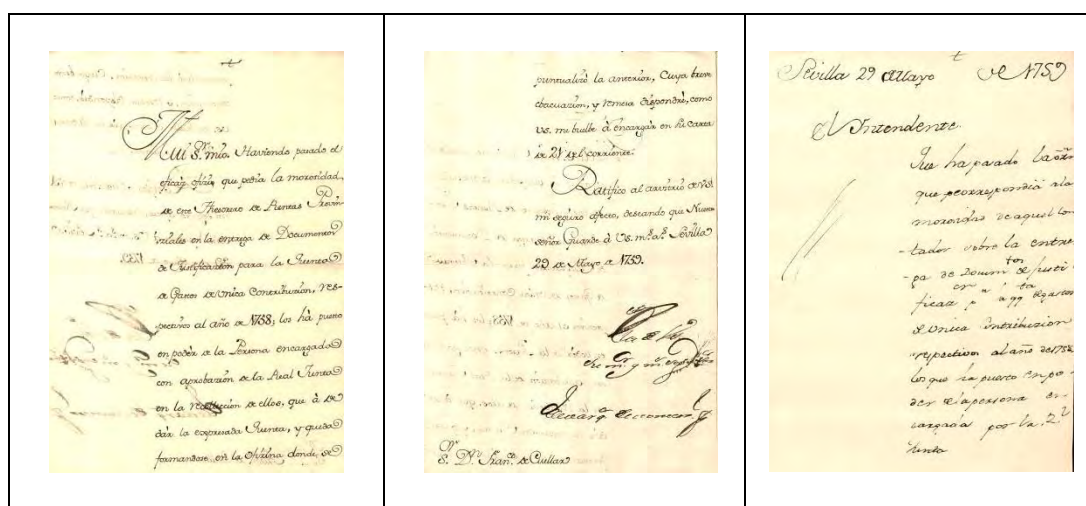 Mui S.r mio. Haviendo pasado el
eficaz oficio, que pedia la morosidad,
de este Thesorero de Rentas Provin
ciales en la entrega de Documentos
de Justificacion para la Junta
de Gastos de Unica Contribucion, res-
pectivos al año de 1758; los há puesto
en poder de la Persona encargada
con aprobacion de la Real Junta
en la recoleccion de ellos, que à de
dàr la expresada Junta, y queda
formandose en la Oficina donde se
puntualizó la anterior, Cuya breve
evacuacion, y remesa dispondré, como
VS. me buelbe à encargar en su Carta
de 21 del corriente.
Ratifico al arvitrio de VS.
mi seguro afecto, deseando que Nuen-
señor Guarde à VS. m.s a.s Sevilla
29 de Mayo de 1759.
S. D.n Fran.co de Cuellar
Sevilla 29 de Mayo de 1759
El Yntendente.
Que ha pasado la orn
que correspondia a la
morosidad de aquel Con
-tador sobre la entre
-ga de Docum.tos de justi
ficaz.on p.a la Jta de gastos
de Unica Contribucion
respectivos al año de 1758
los que ha puesto en po-
der de la persona en
cargada por la R.l
Junta